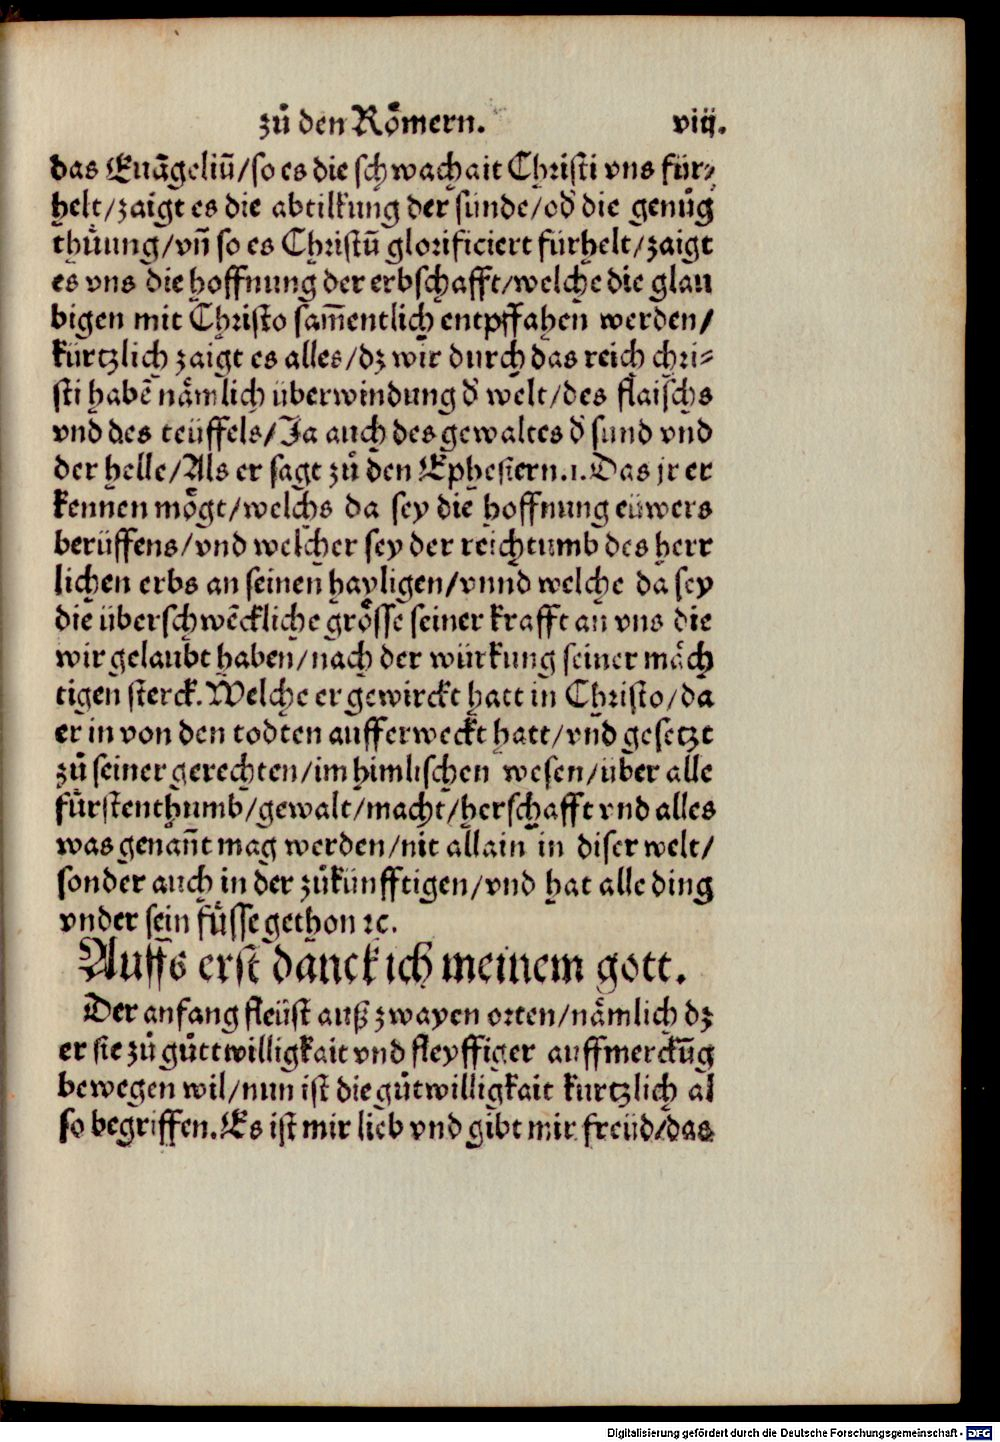 zů den Roͤmern. viij.
das Euãgeliũ/so es die schwachait Christi vns für⸗
helt/zaigt es die abtilkung der sünde/od̕ die genůg
thuͤung/vñ so es Christũ glorificiert fürhelt/zaigt
es vns die hoffnung der erbschafft/welche die glau
bigen mit Christo sam̃entlich entpffahen werden/
kürtzlich zaigt es alles/dz wir durch das reich chri⸗
sti habẽ naͤmlich überwindung d̕ welt/des flaischs
vnd des teüffels/Ja auch des gewaltes d̕ sund vnd
der helle/Als er sagt zů den Ephesiern.1.Das jr er
kennen moͤgt/welchs da sey die hoffnung eüwers
berüffens/vnd welcher sey der reichtumb des herr
lichen erbs an seinen hayligen/vnnd welche da sey
die überschwẽckliche groͤsse seiner krafft an vns die
wir gelaubt haben/nach der würkung seiner maͤch
tigen sterck.Welche er gewirckt hatt in Christo/da
er in von den todten aufferweckt hatt/vnd gesetzt
zů seiner gerechten/im himlischen wesen/über alle
fürstenthumb/gewalt/macht/herschafft vnd alles
was genañt mag werden/nit allain in diser welt/
sonder auch in der zůkünfftigen/vnd hat alle ding
vnder sein fuͤsse gethon ꝛc.
Auffs erst danck ich meinem gott.
Der anfang fleüst auß zwayen orten/naͤmlich dz
er sie zů gůttwilligkait vnd fleyssiger auffmerckũg
bewegen wil/nun ist die gůtwilligkait kurtzlich al
so begriffen.Es ist mir lieb vnd gibt mir freüd/das
Digitalisierung gefördert durch die Deutsche Forschungsgemeinschaft - DFG